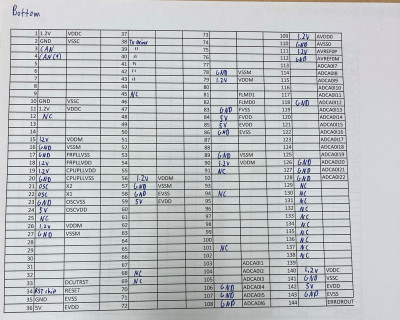 Bottom
1 1.2V VDDC 37 73 109 1.2V AVDD0
2 GND VSSC 38 To Down 74 110 GND AVSS0
3 CAN 39 " 75 111 1.2V AVREF0P
4 CAN 40 " 76 112 GND AVREF0M
5 41 " 77 113 ADCA0I7
6 42 " 78 GND VSSM 114 ADCA0I8
7 43 " 79 1.2V VDDM 115 ADCA0I9
8 44 80 116 ADCA0I10
9 45 NC 81 FLMD1 117 ADCA0I11
10 GND VSSC 46 82 FLMD0 118 GND ADCA0I12
11 1.2V VDDC 47 83 GND FVSS 119 ADCA0I13
12 NC 48 84 5V FVDD 120 ADCA0I14
13 49 85 5V EVDD 121 ADCA0I15
14 50 86 GND EVSS 122 ADCA0I16
15 1.2V VDDM 51 87 123 ADCA0I17
16 GND VSSM 52 88 124 ADCA0I18
17 GND FRPLLVSS 53 89 GND VSSM 125 ADCA0I19
18 1.2V FRPLLVDD 54 90 1.2V VDDM 126 GND ADCA0I20
19 1.2V CPUPLLVDD 55 91 NC 127 GND ADCA0I21
20 GND CPUPLLVSS 56 1.2V VDDM 92 128 GND ADCA0I22
21 OSC X1 57 GND VSSM 93 129 NC
22 OSC X2 58 GND EVSS 94 NC 130 NC
23 GND OSCVSS 59 5V EVDD 95 131 NC
24 5V OSCVDD 60 96 132 NC
25 NC 61 97 133 NC
26 1.2V VDDM 62 98 134 NC
27 GND VSSM 63 99 135 NC
28 64 100 136 NC
29 65 101 NC 137 NC
30 66 102 138 NC
31 67 103 ADCA0I1 139
32 68 NC 104 ADCA0I2 140 1.2V VDDC
33 DCUTRST 69 NC 105 ADCA0I3 141 GND VSSC
34 RST chip RESET 70 106 GND ADCA0I4 142 5V EVDD
35 GND EVSS 71 107 GND ADCA0I5 143 GND EVSS
36 5V EVDD 72 108 GND ADCA0I6 144 ERROROUT